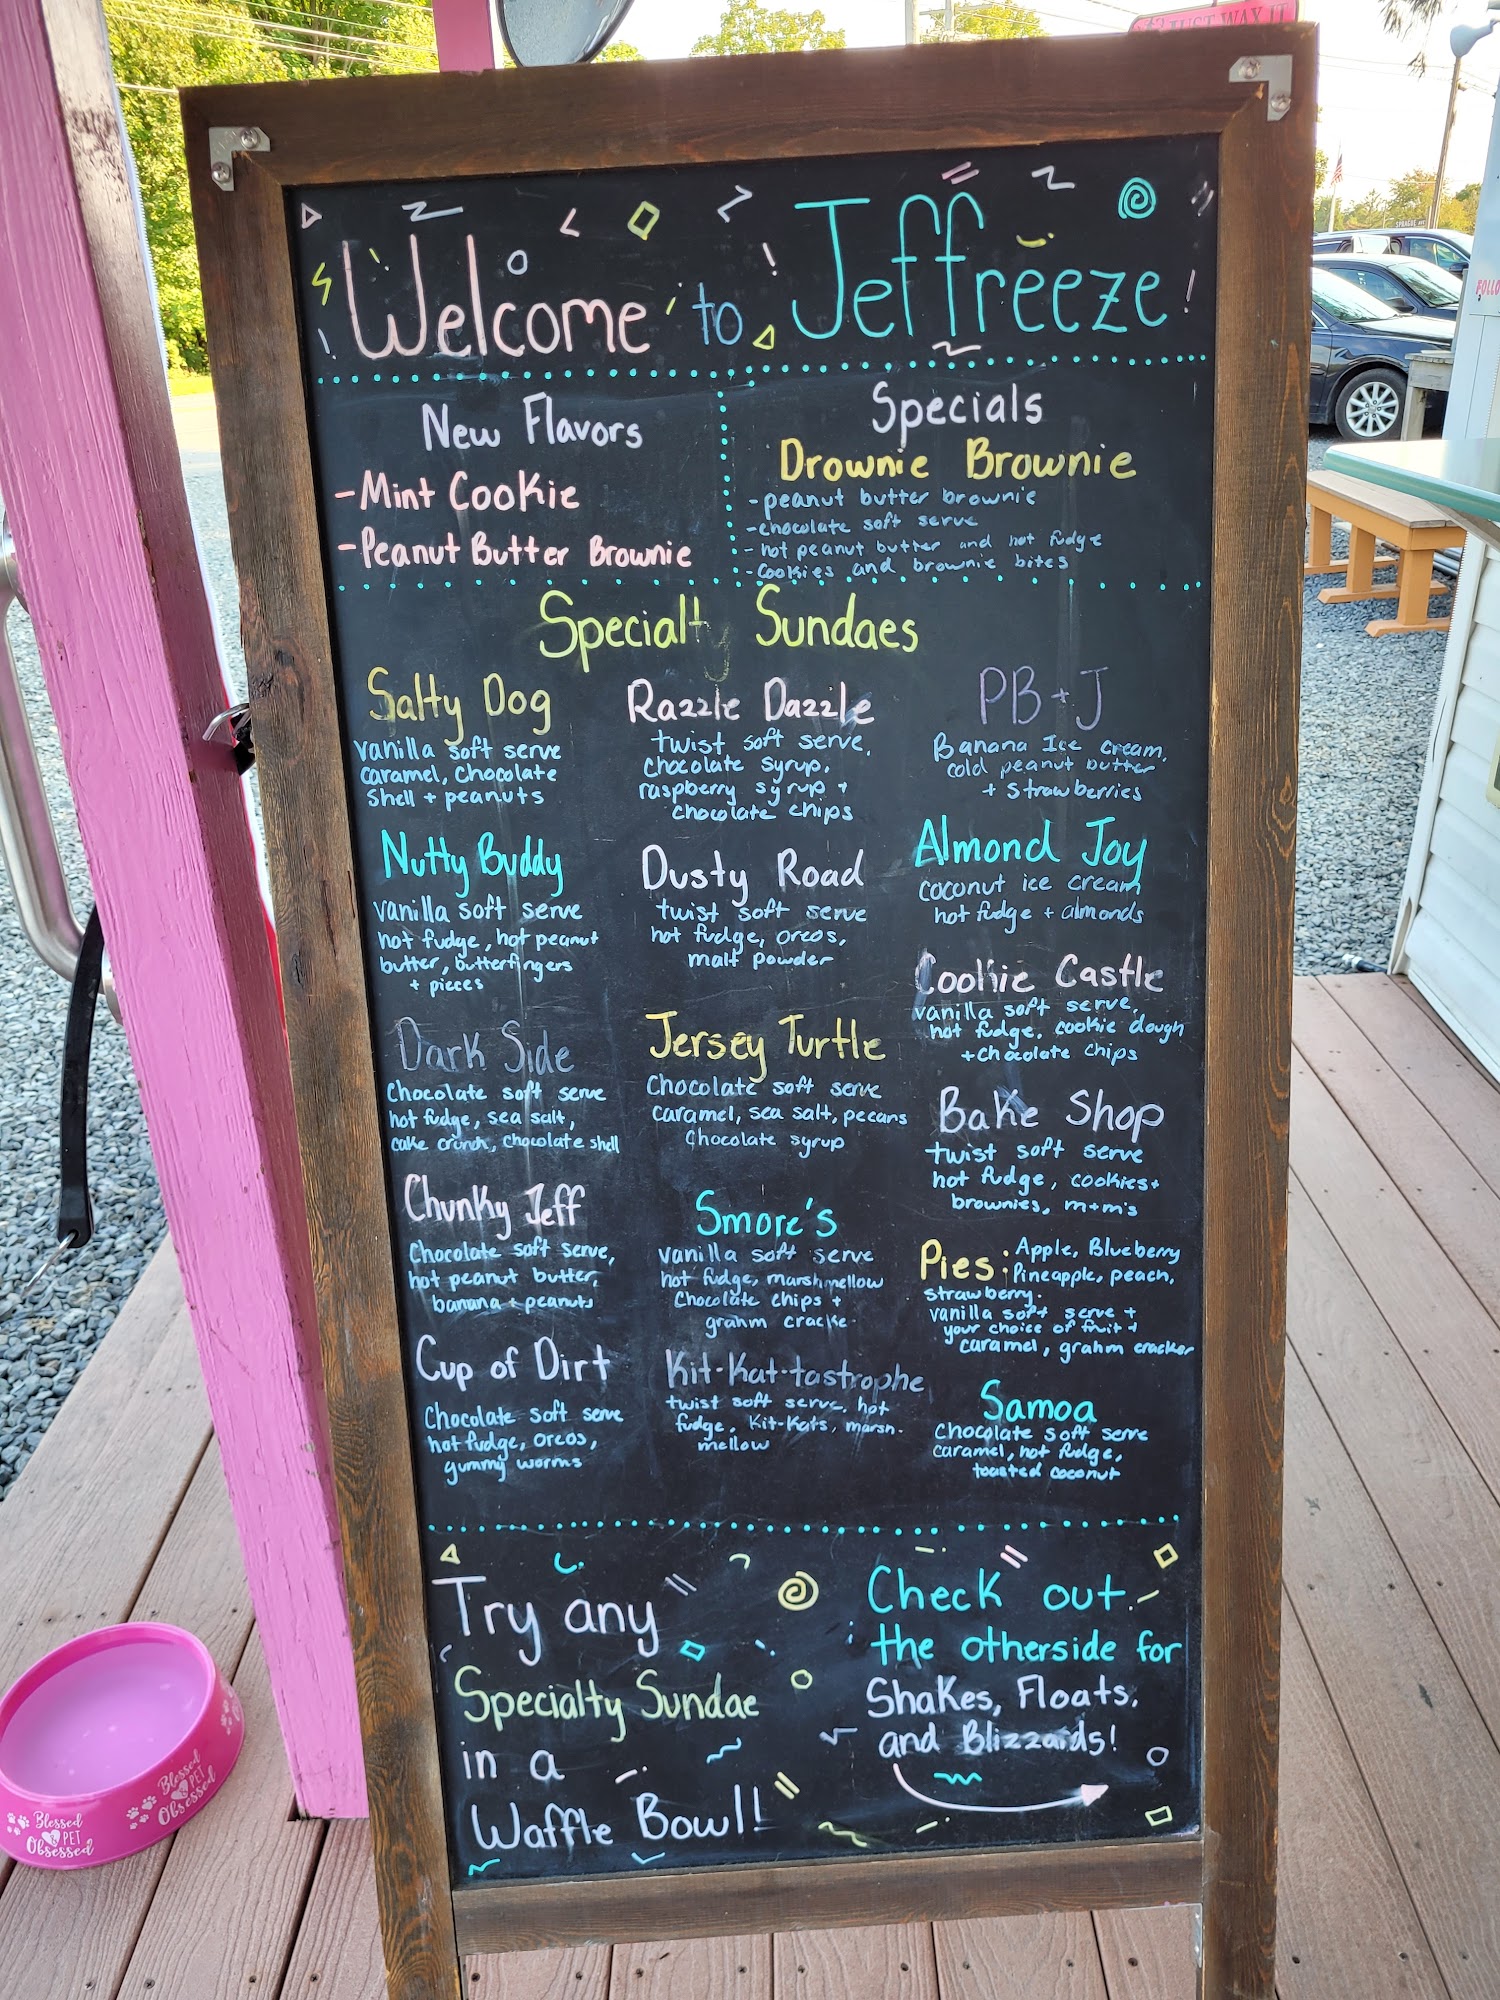 JUST WAX IT
SPRAGUE AVE
FOLLO
Welcome to Jeffreeze!
New Flavors
-Mint Cookie
-Peanut Butter Brownie
Specials
Drownie Brownie
-peanut butter brownie
-chocolate soft serve
-hot peanut butter and hot fudge
-cookies and brownie bites
Specialty Sundaes
Salty Dog
vanilla soft serve
caramel, chocolate
shell + peanuts
Nutty Buddy
vanilla soft serve
hot fudge, hot peanut
butter, butterfingers
+ pieces
Dark Side
Chocolate soft serve
hot fudge, sea salt,
cake crunch, chocolate shell
Chunky Jeff
Chocolate soft serve,
hot peanut butter,
banana + peanuts
Cup of Dirt
Chocolate soft serve
hot fudge, oreos,
gummy worms
Razzle Dazzle
twist soft serve,
chocolate syrup,
raspberry syrup +
chocolate chips
Dusty Road
twist soft serve
hot fudge, oreos,
malt powder
Jersey Turtle
Chocolate soft serve
caramel, sea salt, pecans
Chocolate syrup
Smore's
vanilla soft serve
hot fudge, marshmellow
Chocolate chips +
grahm cracke
Kit-Kat-tastrophe
twist soft serve, hot
fudge, Kit-Kats, marsh-
mellow
PB+J
Banana Ice cream,
cold peanut butter
+ strawberries
Almond Joy
coconut ice cream
hot fudge + almonds
Cookie Castle
vanilla soft serve,
hot fudge, cookie dough
+chocolate chips
Bake Shop
twist soft serve
hot fudge, cookies+
brownies, m+m's
Pies: Apple, Blueberry
Pineapple, peach,
strawberry.
vanilla soft serve +
your choice of fruit +
caramel, grahm cracker
Samoa
Chocolate soft serve
caramel, hot fudge,
toasted coconut
Try any
Specialty Sundae
in a
Waffle Bowl!
Check out
the otherside for
Shakes, Floats,
and Blizzards!
Blessed
& PET
Obsessed
Blessed
& PET
Obsessed